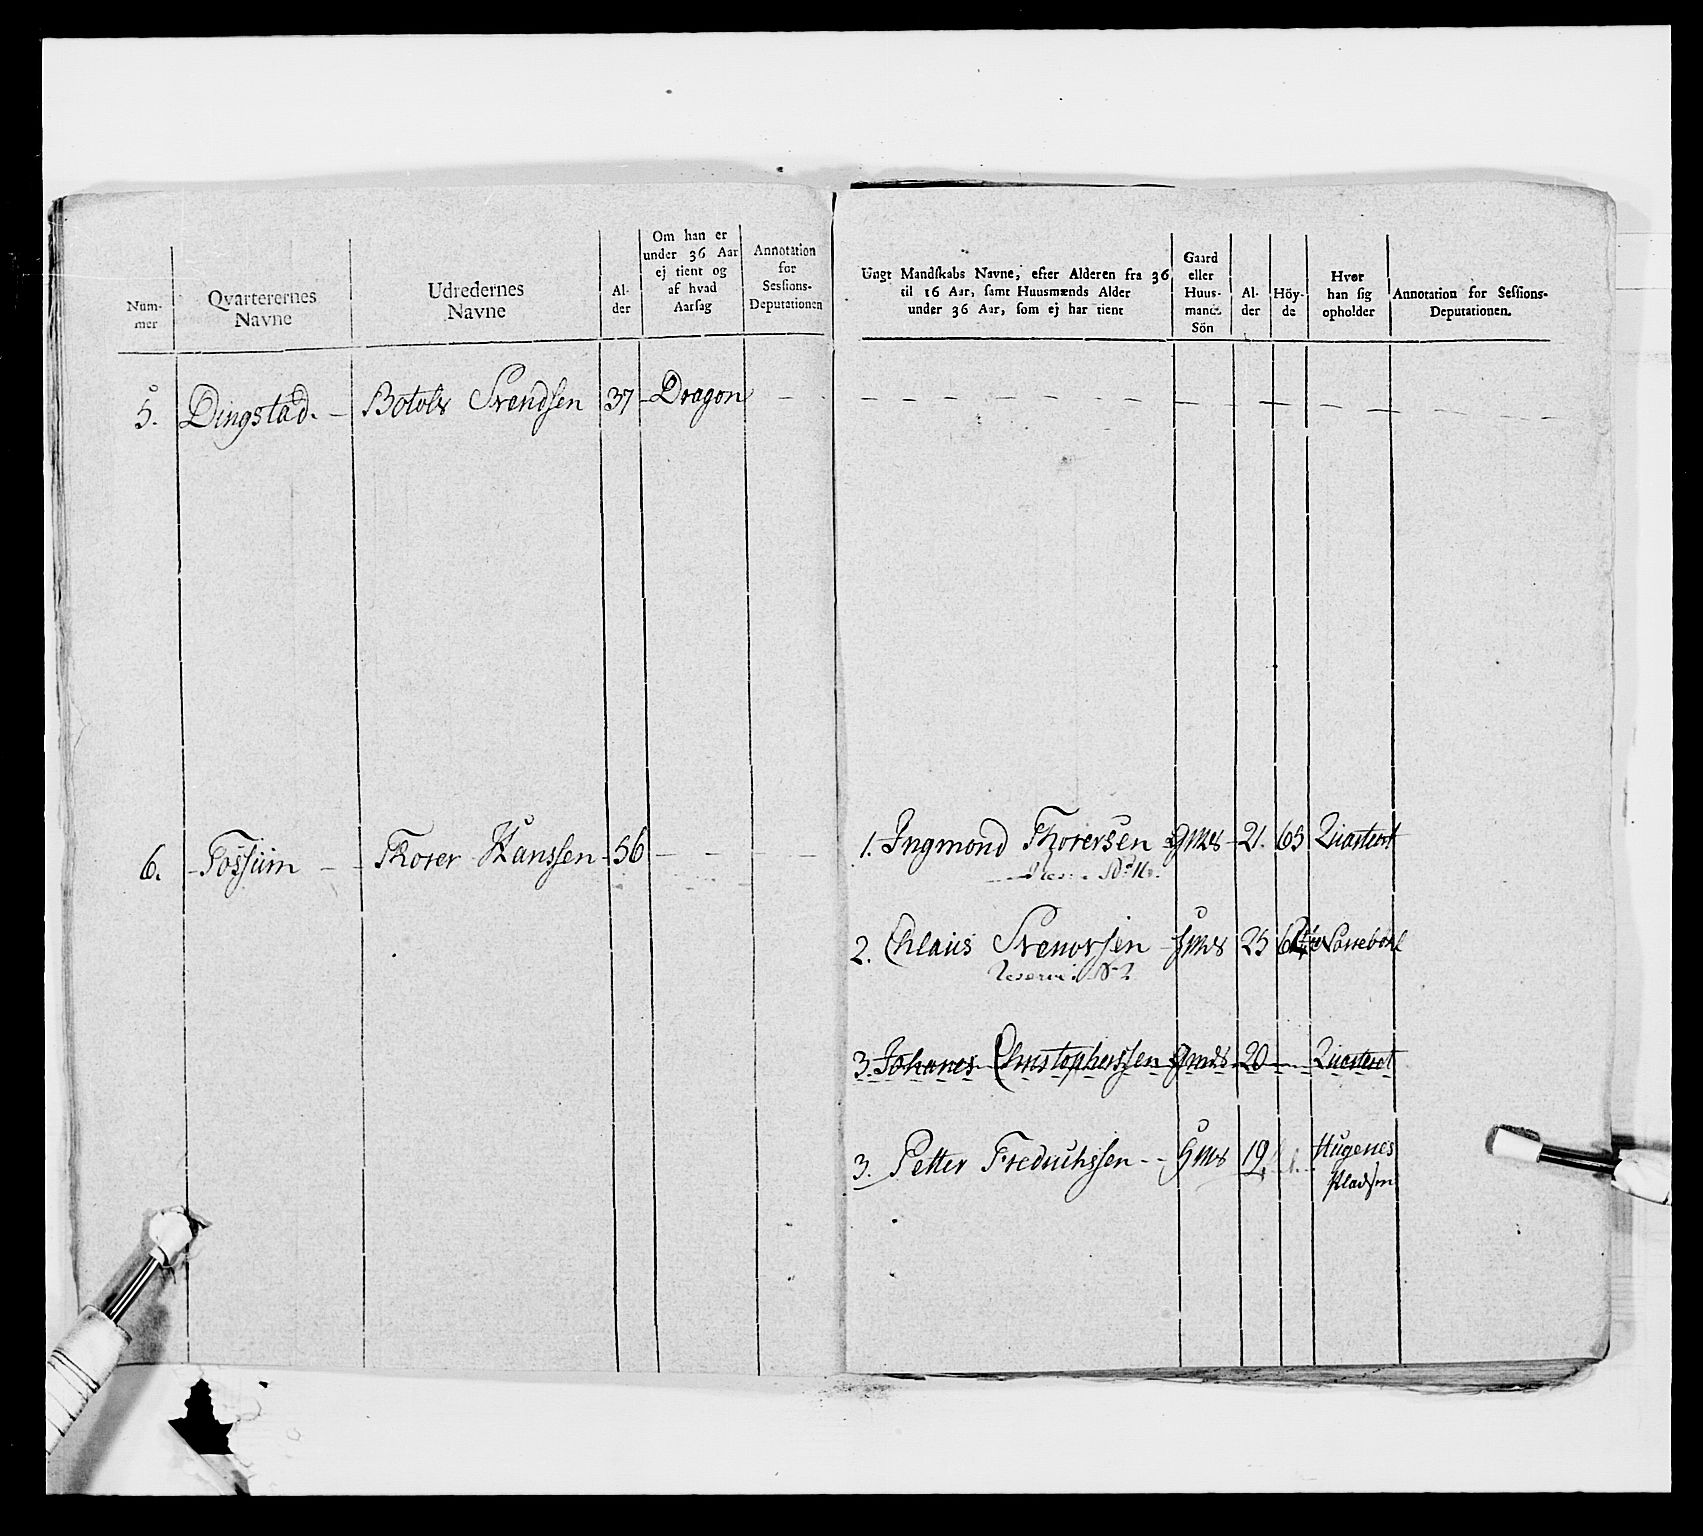 Num-
mer
Qvarterernes
Navne
Udredernes
Navne
Al-
der
Om han er
under 36 Aar
ej tient og
af hvad
Aarsag
Annotation
for
Sessions-
Deputationen
Ungt Mandskabs Navne, efter Alderen fra 36
til 16 Aar, samt Huusmænds Alder
under 36 Aar, som ej har tient
Gaard
eller
Huus-
mands
Sön
Al-
der
Höy-
de
Hvor
han sig
opholder
Annotation for Sessions-
Deputationen.
5. Dingstad. Botolv Svendsen 37 Dragon
6. Fossum Thorer Hanssen 56
1. Ingmond Thorersen 21. 65 Qvarteret
2. Chlaus 25
Reserve
3. Johanes Christophersen 20 Qvarteret
3. Petter Fredrichssen 19 Hugenes
Pladsen